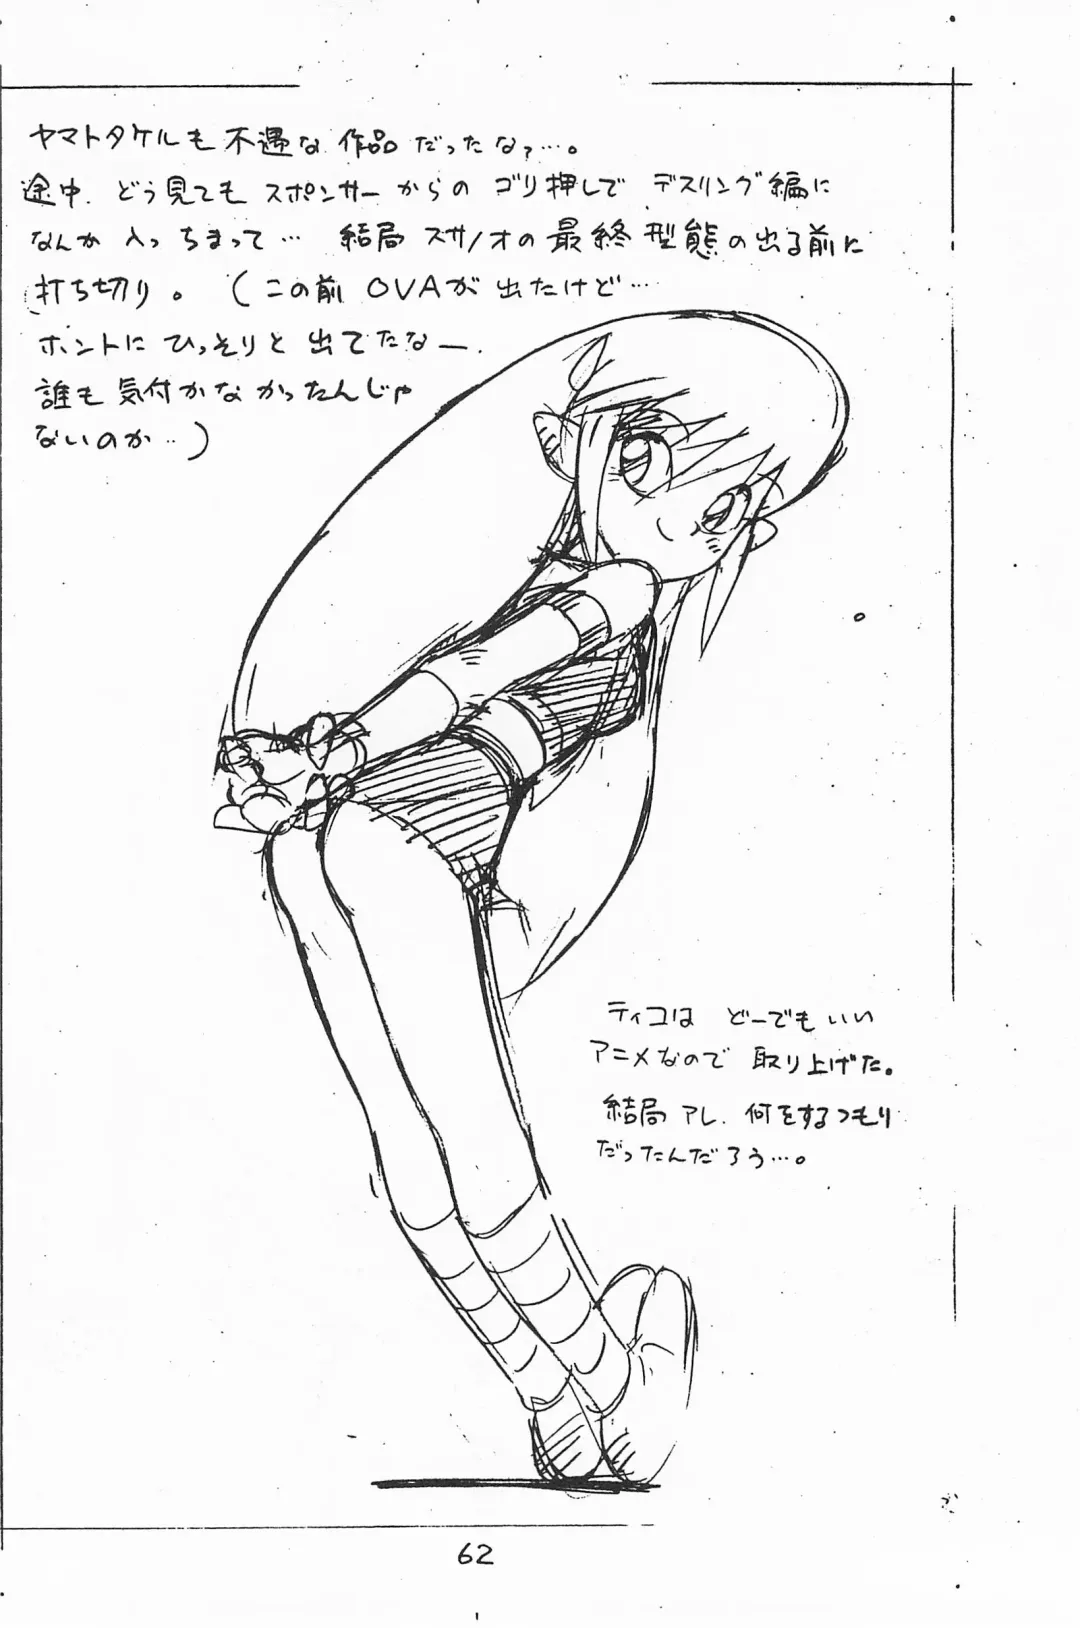 ヤマトタケルも不遇な作品だったなァ…。
途中、どう見てもスポンサーからのゴリ押しでデスリング編に
なんか入っちまって…結局スサノオの最終型態の出る前に
打ち切り。(この前OVAが出たけど…
ホントにひっそりと出てたなー.
誰も気付かなかったんじゃ
ないのか…)
ティコはどーでもいい
アニメなので取り上げた。
結局アレ、何をするつもり
だったんだろう…。
62